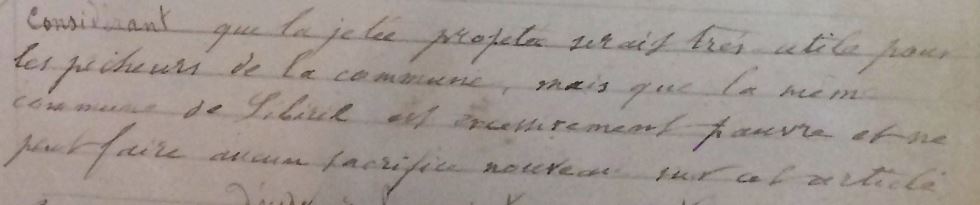 Considérant que la jetée projetée serait très utile pour
les pêcheurs de la commune, mais que la mêm
commune de est excessivement pauvre et ne
peut faire aucun sacrifice nouveau sur cet article